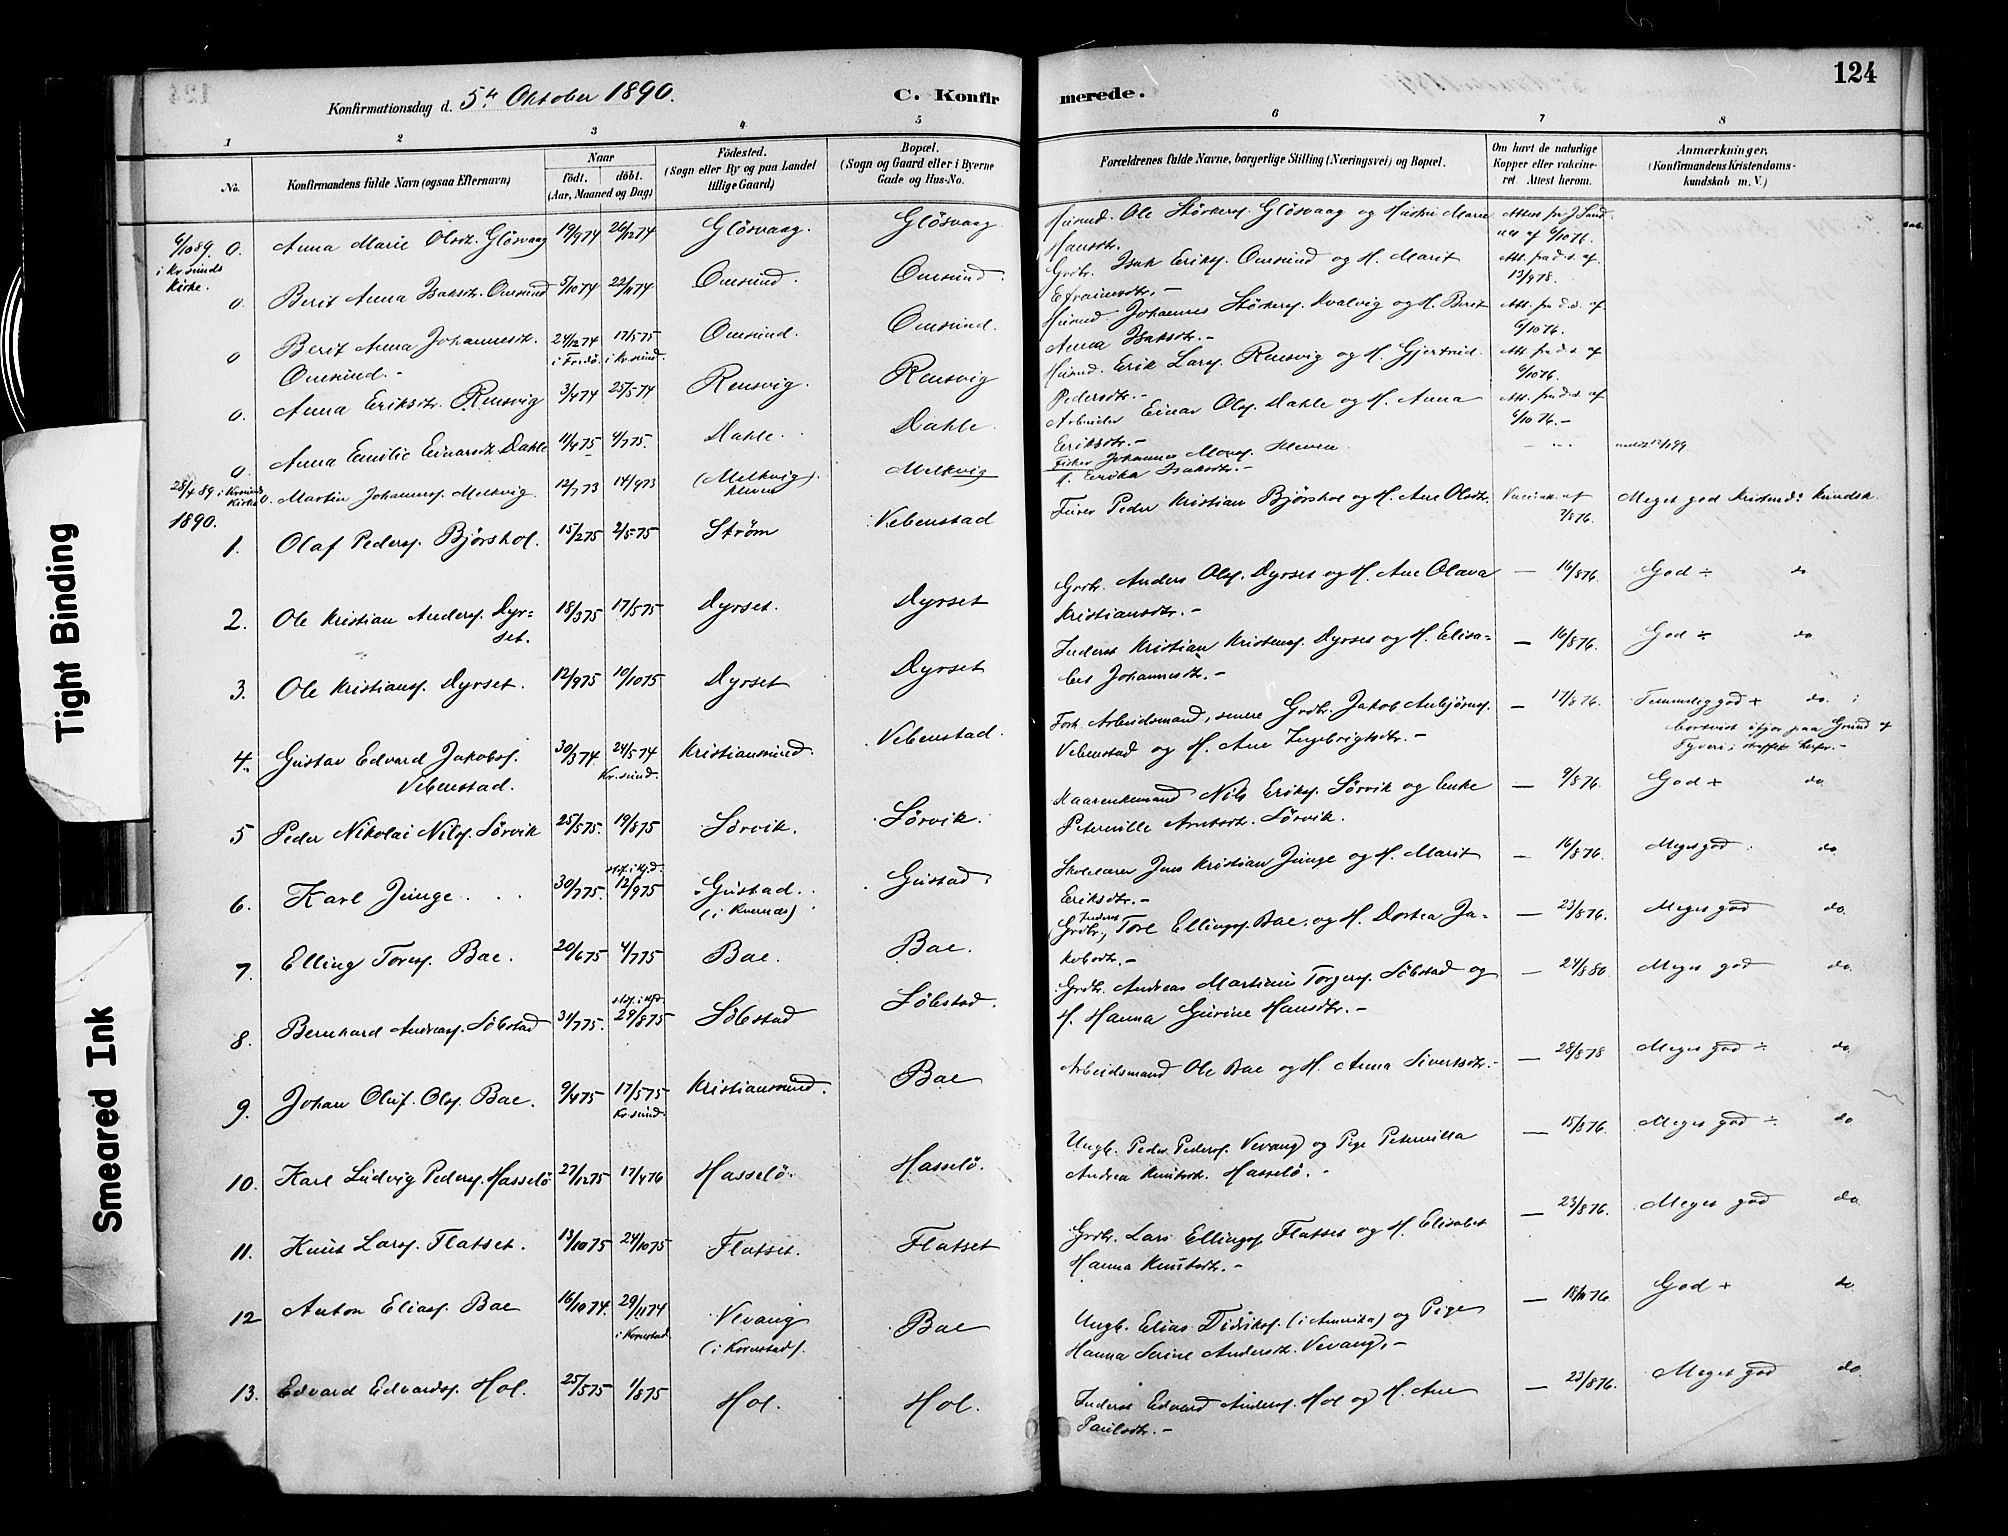 124
Konfirmationsdag d. 5te Oktober 1890.
C. Konfirmerede.
1 2 3 4 5 6 7 8
No.
Konfirmandens fulde Navn (ogsaa Efternavn)
Naar
födt. döbt.
(Aar, Maaned og Dag)
Födested.
(Sogn eller By og paa Landet
tillige Gaard)
Bopæl.
(Sogn og Gaard eller i Byerne
Gade og Hus-No.
Forældrenes fulde Navne, borgerlige Stilling (Næringsvei) og Bopæl.
Om havt de naturlige
Kopper eller vakcine-
ret Attest herom.
Anmærkninger,
(Konfirmandens Kristendoms-
kundskab m. V.)
6/10 89 i Kr.sunds Kirke. 0. Anna Marie Olsdtr. Glösvaag 19/9 74 26/12 74 Glösvaag. Glösvaag
Husmd. Ole Störkers. Glösvaag og Hustru Marie
Hansdtr.
0. Berit Anna Isaksdtr. Omsund 5/10 74 22/11 74 Omsund. Omsund.
Grdbr. Isak Eriks. Omsund og H. Marit
Efraimsdtr. - Att. fra d.s. af 13/9 78.
0 Berit Anna Johannesdtr. Omsund. - 24/12 74 i Fredö. 17/5 75 i Kr.sund. Omsund. Omsund.
Husmd. Johannes Störkers. Kvalvig og H. Berit
Anna Isaksdtr. - Att. fra d.s. af 6/10 76.
0. Anna Eriksdtr. Rensvig 3/4 74 25/5 74 Rensvig. Rensvig
Husmd. Erik Lars. Rensvig og H. Gjertrud
Pedersdtr. - Att. fra d.s. af 6/10 76.
0. Anna Emilie Einarsdtr. Dahle 11/4 75 4/7 75. Dahle. Dahle.
Arbeider Einar Ols. Dahle og H. Anna
Eriksdtr. - Att. fra d.s. af 6/10 76. -
28/4 89 i Kr.sunds Kirke 0. Martin Johanness. Melkvig 12/7 73 14/9 73 (Melkvig) Melkvig
Fisker Johannes
H. Erika Isaksdtr. -
1890.
1. Olaf Peders. Bjørshol. 15/2 75 2/5 75 Strøm Vebenstad
Furer Peder Kristian Bjørshol og H. Ane Olsdtr. Vaccinat. af 7/8 76. Meget god Kristend: kundsk.
2. Ole Kristian Anders. Dyrset. 18/3 75 17/5 75 Dyrset. Dyrset
Grdbr. Anders Ols. Dyrset og H. Ane Olava
Kristiansdtr. - — 16/8 76. God ÷ do
3. Ole Kristians. Dyrset. 12/9 75 10/10 75 Dyrset Dyrset
Inderst Kristian Kristens. Dyrset og H. Elisa-
bet Johannesdtr. - — 16/8 76. God ÷ do
4. Gustav Edvard Jakobs. Vebenstad. 30/3 74 24/5 74 Kr.sund. Kristianssund. Vebenstad.
Forh. Arbeidsmand, senere Grdbr. Jakob Asbjörns.
Vebenstad og H. Ane Ingebrigtsdtr. - — 17/8 76. Temmelig god + do.
bortvist ifjor paa Grund af
Tyveri;
5 Peder Nikolai Nils. Sörvik 25/5 75. 19/8 75 Sörvik. Sörvik.
Kaarenkemand Nils Eriks. Sörvik og Enke
Peternille Arntsdtr. Sörvik. — 9/8 76. God + do
6. Karl Junge. 30/7 75. 12/9 75 Gustad. (i Kvernæs) Gustad.
Skolelærer Jens Kristian Junge og H. Marit
Eriksdtr. - — 16/8 76. Meget god do
7. Elling Tores. Bae. 20/6 75 4/7 75 Bae. Bae.
(Inderst Grdbr., Tore Ellings. Bae, og H. Dortea Ja-
kobsdtr. - — 23/8 76. Meget god do.
8. Bernhard Andreas. Söbstad 31/7 75. 29/8 75 Söbstad Söbstad.
Grdbr. Andreas Martinus Torgers. Söbstad og
H. Hanna Gurine Hansdtr. - — 24/8 80. Meget god do.
9. Johan Oluf Ols. Bae. 9/4 75 17/5 75 Kr.sund. Kristianssund. Bae
Arbeidsmand Ole Bae og H. Anna Sivertsdtr. - — 28/8 78 Meget god ÷ do.
10. Karl Ludvig Peders. Hasselö 27/12 75 17/4 76 Hasselö. Hasselö.
Ungk. Peder Peders. Vevang og Pige Peternilla
Andrea Knutsdtr. Hasselö. - — 15/8 76. Meget god ÷ do
11. Knut Lars. Flatset. 13/10 75 24/10 75 Flatset. Flatset
Grdbr. Lars Ellings. Flatset og H. Elisabet
Hanna Knutsdtr. - — 23/8 76. Meget god do.
12 Anton Elias. Bae 16/10 74. 29/11 74 i Kornstad Vevang (i Kornstad). Bae
Ungk. Elias Didriks. (i Amerika) og Pige
Hanna Serine Andersdtr. Vevang. - — God + do
13. Edvard Edvards. Hol. 25/5 75 1/8 75 Hol. Hol.
Inderst Edvard Anders. Hol og H. Ane
Paulsdtr. - — 23/8 76. Meget god do
Tight Binding
Smeared Ink